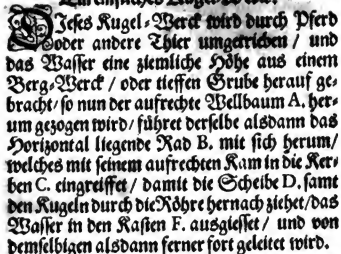 Dieses Kugel-Werck wird durch Pferd
oder andere Thier umgetrieben / und
das Wasser eine ziemliche Höhe aus einem
Berg-Werck / oder tieffen Grube herauf ge-
bracht / so nun der aufrechte Wellbaum A. her-
um gezogen wird / führet derselbe alsdann das
Horizontal liegende Rad B. mit sich herum /
welches mit seinem aufrechten Kam in die Ker-
ben C. eingreiffet / damit die Scheibe D. samt
den Kugeln durch die Röhre hernach ziehet / das
Wasser in den Kasten F. ausgiesset / und von
demselbigen alsdann ferner fort geleitet wird.